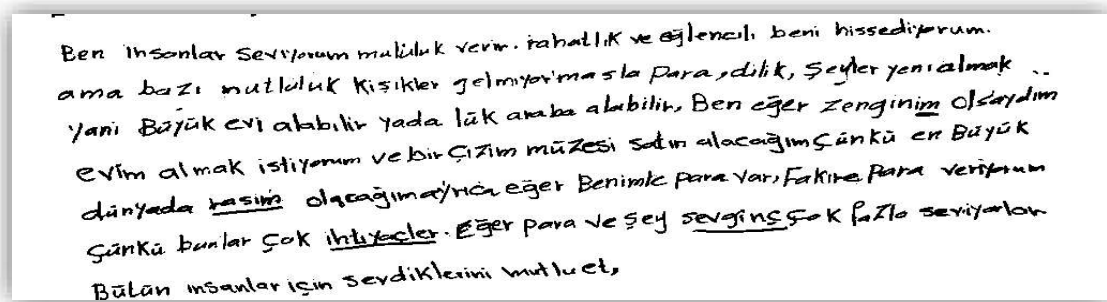 Ben insanlar seviyorum mululuk verir. rahatlık ve eğlencili beni hissediyorum.
ama bazı mutluluk kişikler gelmiyor masla para, dilik, şeyler yeni almak
yani Büyük evi alabilir yada lük araba alabilir, Ben eğer zenginim olsaydım
evim almak istiyorum ve bir çizim müzesi satın alacağım çünkü en Büyük
dünyada rasim olacağım ayrıca eğer Benimle para var, Fakire para veriyorum
çünkü bunlar çok ihtiyaçler. Eğer para ve şey sevginç çok fazla seviyorlar
Bütün insanlar için sevdiklerini mutlu et,